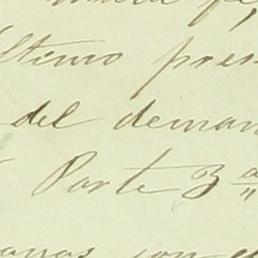 ultimo pres
del deman
Parte 3ª
con